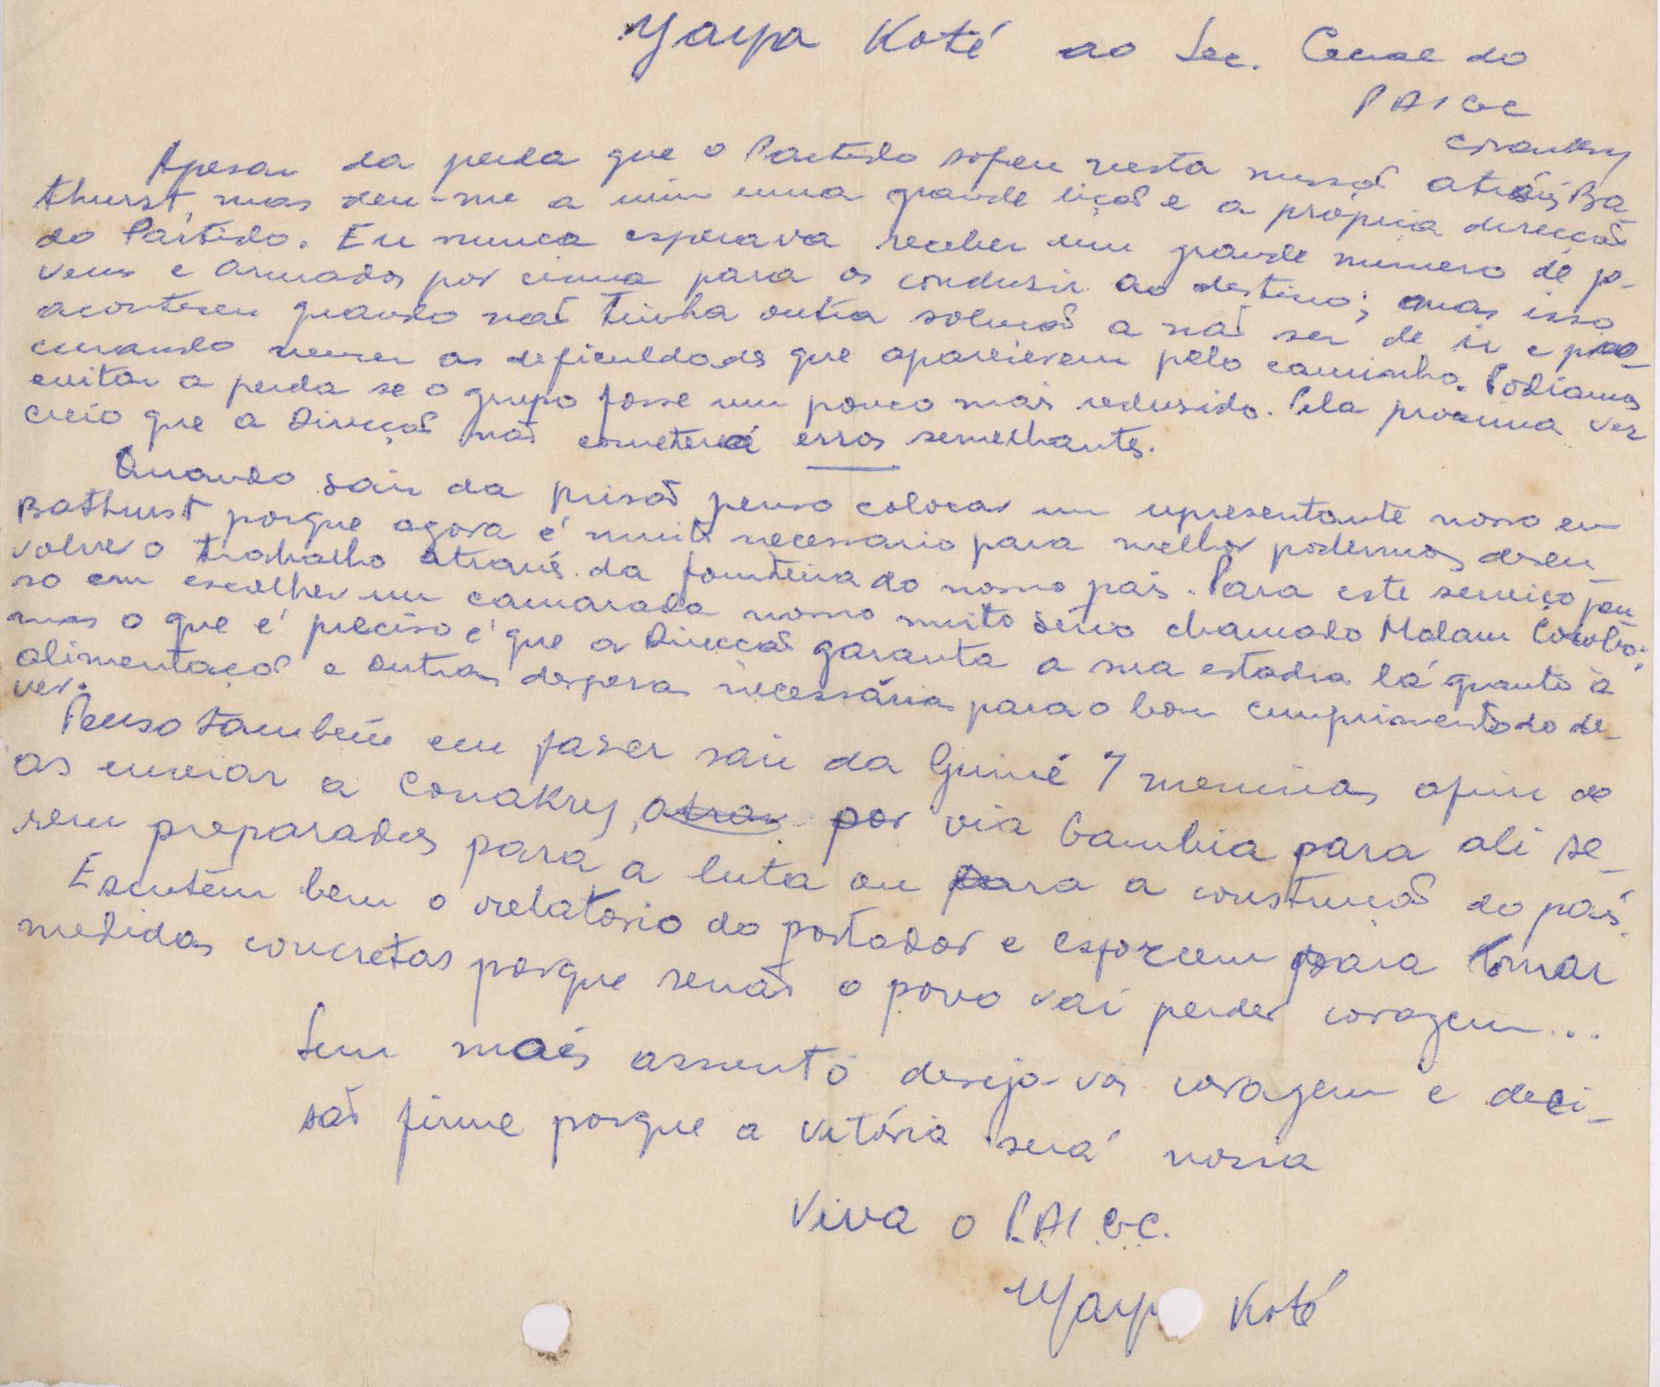 Yaya Koté ao Sec. Geral do
PAIGC
Conakry
Apesar da perda que o Partido sofreu nesta missão através Ba-
thurst, mas deu-me a mim uma grande lição e a própria direcção
do Partido. Eu nunca esperava receber um grande número de jo-
vens e armados por cima para os condusir ao destino; mas isso
aconteceu quando não tinha outra solução a não ser de ir e pro-
curando vencer as deficuldades que aparecerem pelo caminho. Podiamos
evitar a perda se o grupo fosse um pouco mais redusido. Pela proxima vez
creio que a Direcção não cometerá erros semelhantes.
Quando sair da prisão penso colocar um representante nosso em
Bathurst porque agora é muito necessario para melhor podermos desen
volver o trabalho através da fronteira do nosso pais. Para este serviço pen
so em escolher um camarada nosso muito sério chamado Malam
mas o que é preciso é que a Direcção garanta a sua estadia lá quanto à
alimentação e outras despesas necessárias para o bom cumprimento do de-
ver.
Penso também em faser sair da Guiné 7 meninas afim de
as enviar a Conakry, atrav por via Gambia para ali se-
rem preparadas para a luta ou para a construção do pais.
Escutem bem o relatório do portador e esforcem para tomar
medidas concretas porque senão o povo vai perder coragem...
Sem mais assunto desejo-vos coragem e deci-
são firme porque a vitória será nossa
Viva o P.A.I.G.C.
Yaya Koté